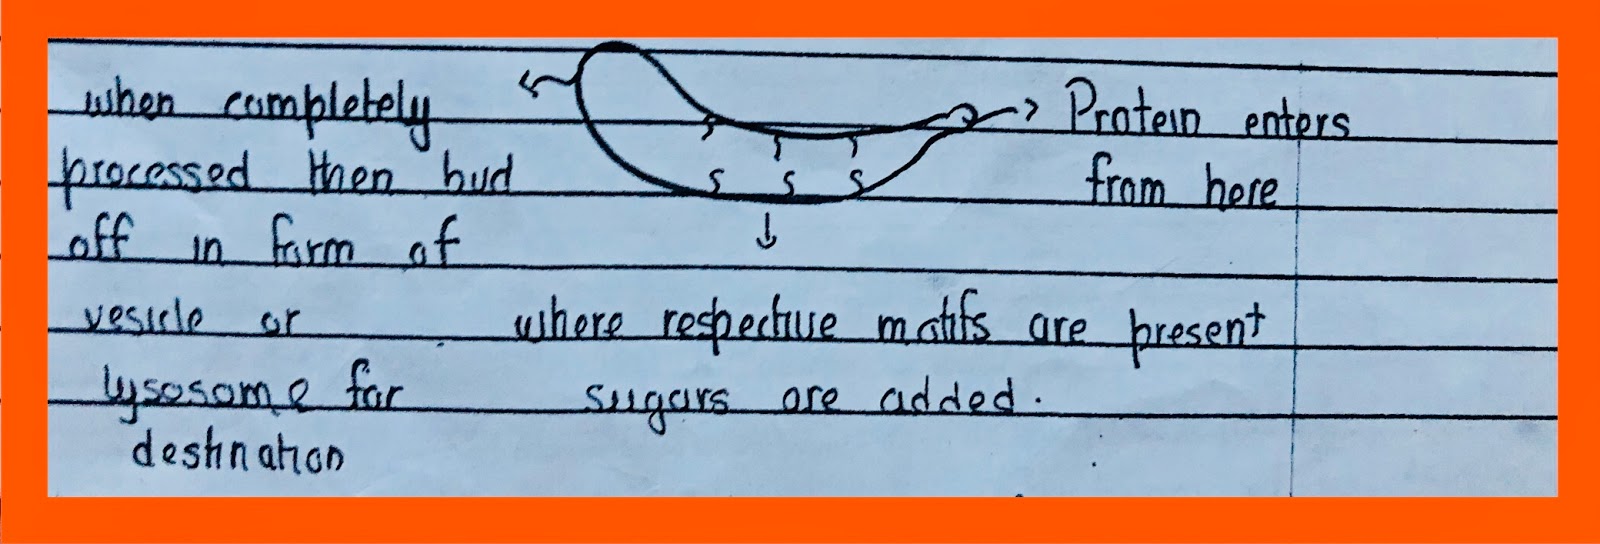 when completely
processed then bud
off in form of
vesicle or
lysosome for
destination
S S S
where respective motifs are present
sugars are added.
Protein enters
from here